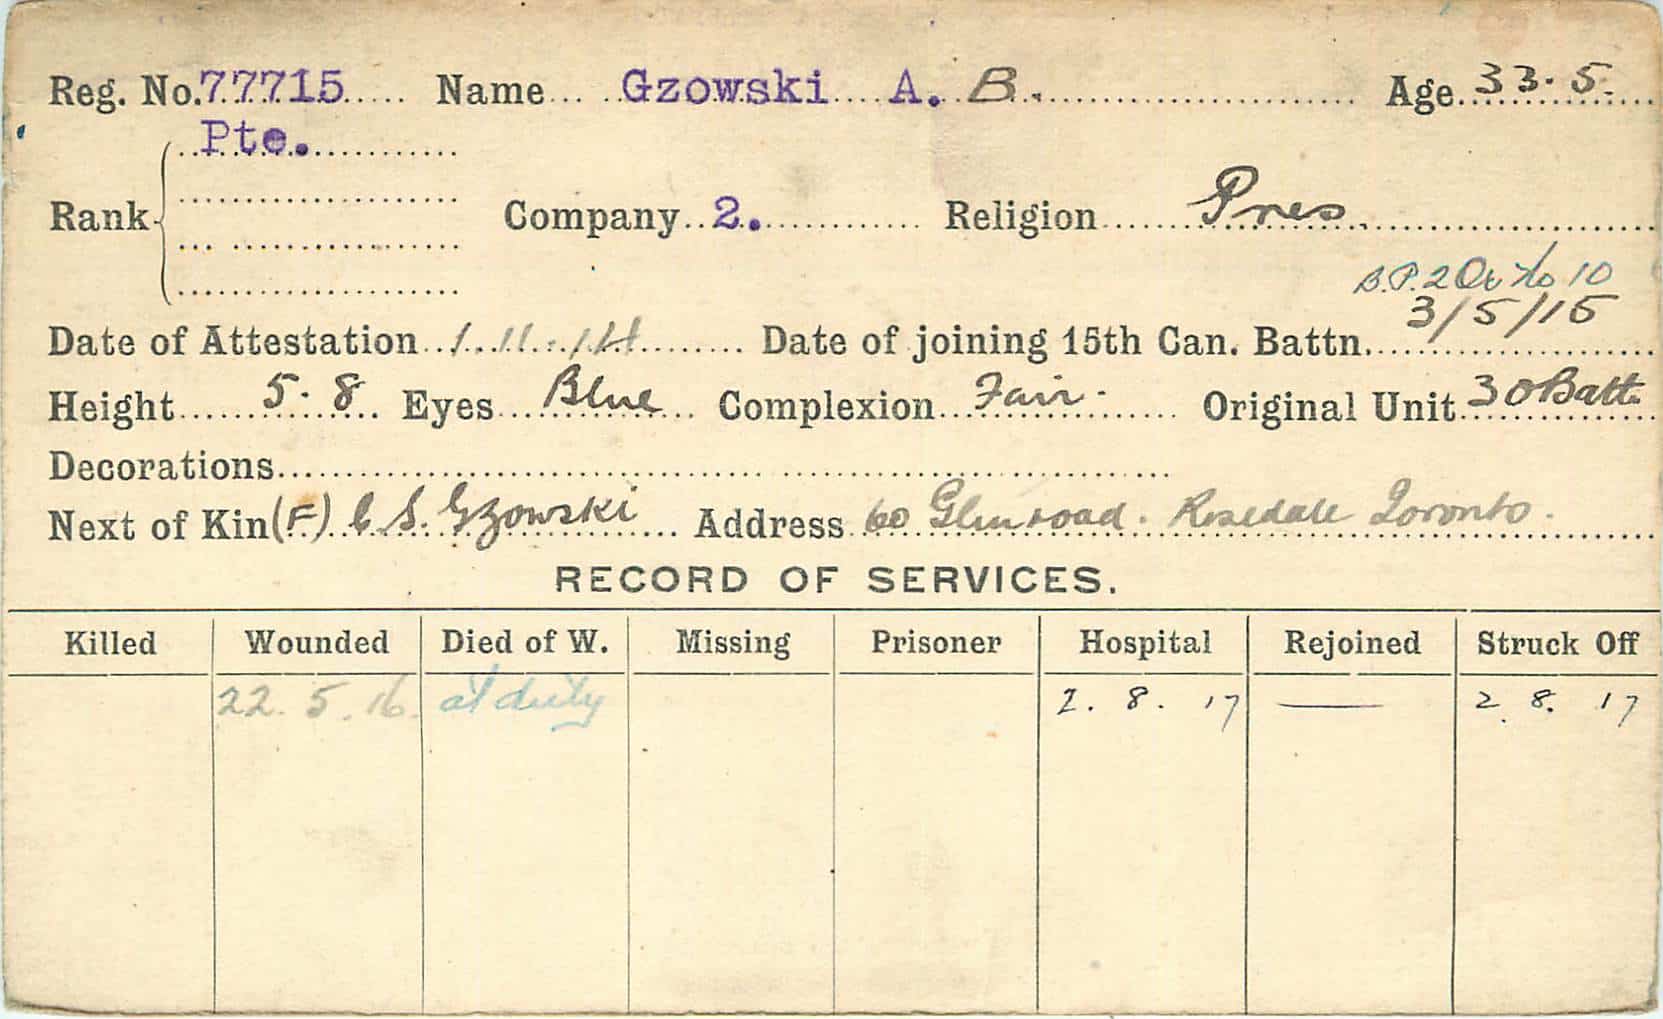 Reg. No. 77715 Name Gzowski A. B. Age 33.5.
Pte.
Rank Company 2. Religion Pres.
B.P. 2 to 10
3/5/15
Date of Attestation 1.11.14 Date of joining 15th Can. Battn.
Height 5.8 Eyes Blue Complexion Fair. Original Unit 30 Batt.
Decorations
Next of Kin (F) C S. Gzowski Address 60 Glen road. Rosedale Toronto.
RECORD OF SERVICES.
Killed Wounded Died of W. Missing Prisoner Hospital Rejoined Struck Off
22.5.16. at duty 2.8.17 — 2.8.17